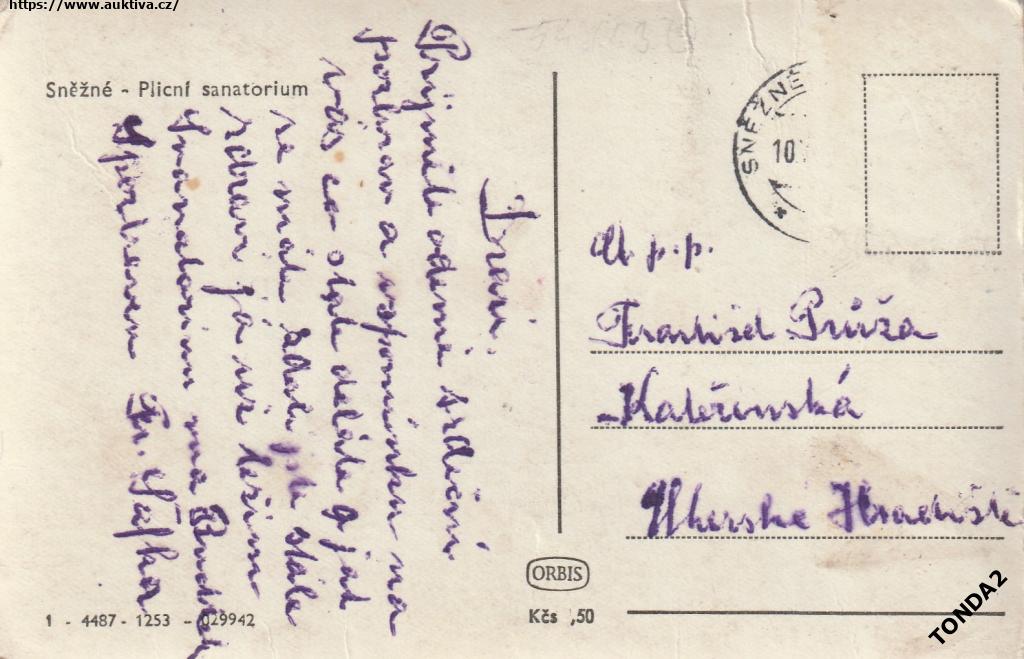 https://www.auktiva.cz/
Sněžné - Plicní sanatorium
Drazí.
Přijměte odemě srdečný
pozdrav a vzpomínku na
vás co stále děláte a jak
se máte zdali jste stále
zdraví já už ležím
Sanatorium na
Spozdravem Fr. Šafka
SNĚŽNÉ
10
Ct p.p.
František Průža
Kateřinská
Uherske Hradiště
ORBIS
Kčs ,50
1 - 4487 - 1253 - 029942
TONDA2